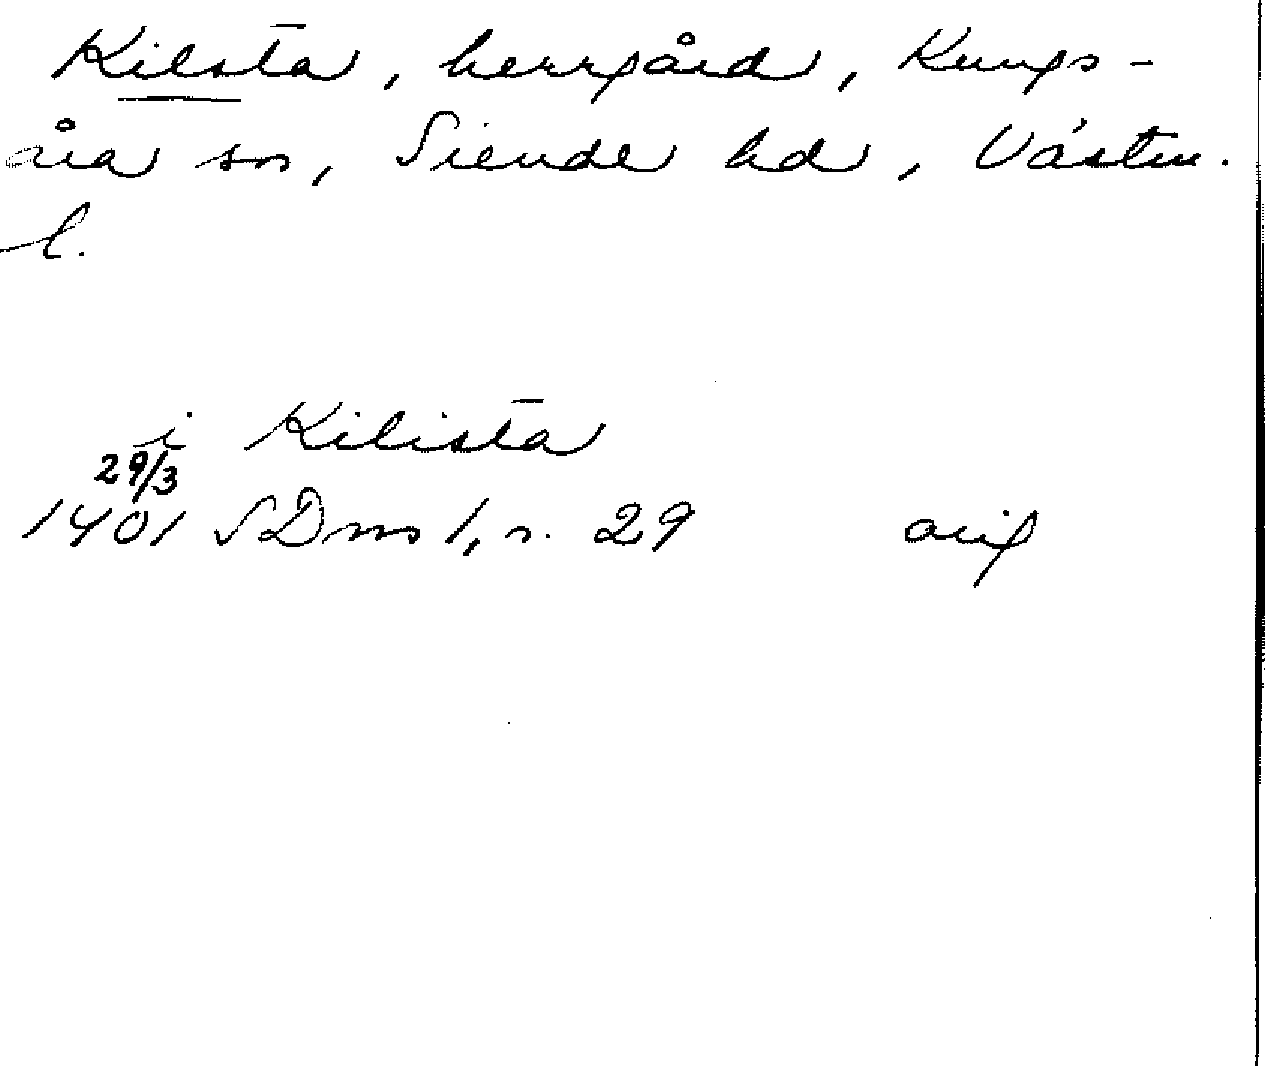 Kilsta, herrgård, Kungs-
åra sn, Siende hd, Västm.
l.
i Kilista
29/3
1401 SDns 1, s. 29 orig